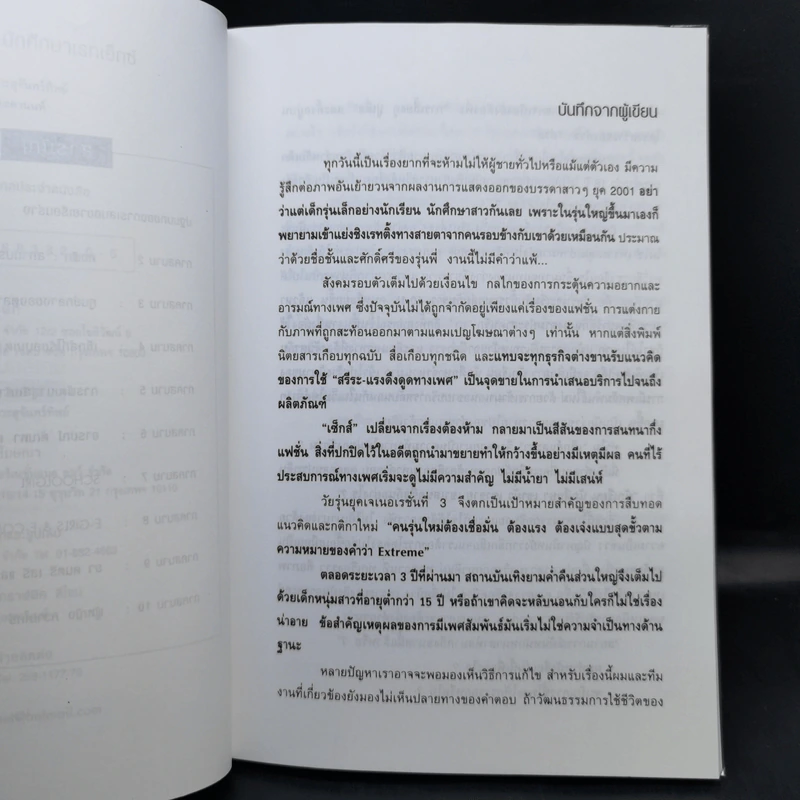 บันทึกจากผู้เขียน
ทุกวันนี้เป็นเรื่องยากที่จะห้ามไม่ให้ผู้ชายทั่วไปหรือแม้แต่ตัวเอง มีความ
รู้สึกต่อภาพอันเย้ายวนจากผลงานการแสดงออกของบรรดาสาวๆ ยุค 2001 อย่า
ว่าแต่เด็กรุ่นเล็กอย่างนักเรียน นักศึกษาสาวกันเลย เพราะในรุ่นใหญ่ขึ้นมาเองก็
พยายามเข้าแย่งชิงเรทติ้งทางสายตาจากคนรอบข้างกับเขาด้วยเหมือนกัน ประมาณ
ว่าด้วยชื่อชั้นและศักดิ์ศรีของรุ่นพี่ งานนี้ไม่มีคำว่าแพ้...
สังคมรอบตัวเต็มไปด้วยเงื่อนไข กลไกของการกระตุ้นความอยากและ
อารมณ์ทางเพศ ซึ่งปัจจุบันไม่ได้ถูกจำกัดอยู่เพียงแค่เรื่องของแฟชั่น การแต่งกาย
กับภาพที่ถูกสะท้อนออกมาตามแคมเปญโฆษณาต่างๆ เท่านั้น หากแต่สิ่งพิมพ์
นิตยสารเกือบทุกฉบับ สื่อเกือบทุกชนิด และแทบจะทุกธุรกิจต่างขานรับแนวคิด
ของการใช้ "สรีระ-แรงดึงดูดทางเพศ" เป็นจุดขายในการนำเสนอบริการไปจนถึง
ผลิตภัณฑ์
"เซ็กส์" เปลี่ยนจากเรื่องต้องห้าม กลายมาเป็นสีสันของการสนทนากึ่ง
แฟชั่น สิ่งที่ปกปิดไว้ในอดีตถูกนำมาขยายทำให้กว้างขึ้นอย่างมีเหตุมีผล คนที่ไร้
ประสบการณ์ทางเพศเริ่มจะดูไม่มีความสำคัญ ไม่มีน้ำยา ไม่มีเสน่ห์
วัยรุ่นยุคเจเนอเรชั่นที่ 3 จึงตกเป็นเป้าหมายสำคัญของการสืบทอด
แนวคิดและกติกาใหม่ "คนรุ่นใหม่ต้องเชื่อมั่น ต้องแรง ต้องเจ๋งแบบสุดขั้วตาม
ความหมายของคำว่า Extreme"
ตลอดระยะเวลา 3 ปีที่ผ่านมา สถานบันเทิงยามค่ำคืนส่วนใหญ่จึงเต็มไป
ด้วยเด็กหนุ่มสาวที่อายุต่ำกว่า 15 ปี หรือถ้าเขาคิดจะหลับนอนกับใครก็ไม่ใช่เรื่อง
น่าอาย ข้อสำคัญเหตุผลของการมีเพศสัมพันธ์มันเริ่มไม่ใช่ความจำเป็นทางด้าน
ฐานะ
หลายปัญหาเราอาจจะพอมองเห็นวิธีการแก้ไข สำหรับเรื่องนี้ผมและทีม
งานที่เกี่ยวข้องยังมองไม่เห็นปลายทางของคำตอบ ถ้าวัฒนธรรมการใช้ชีวิตของ